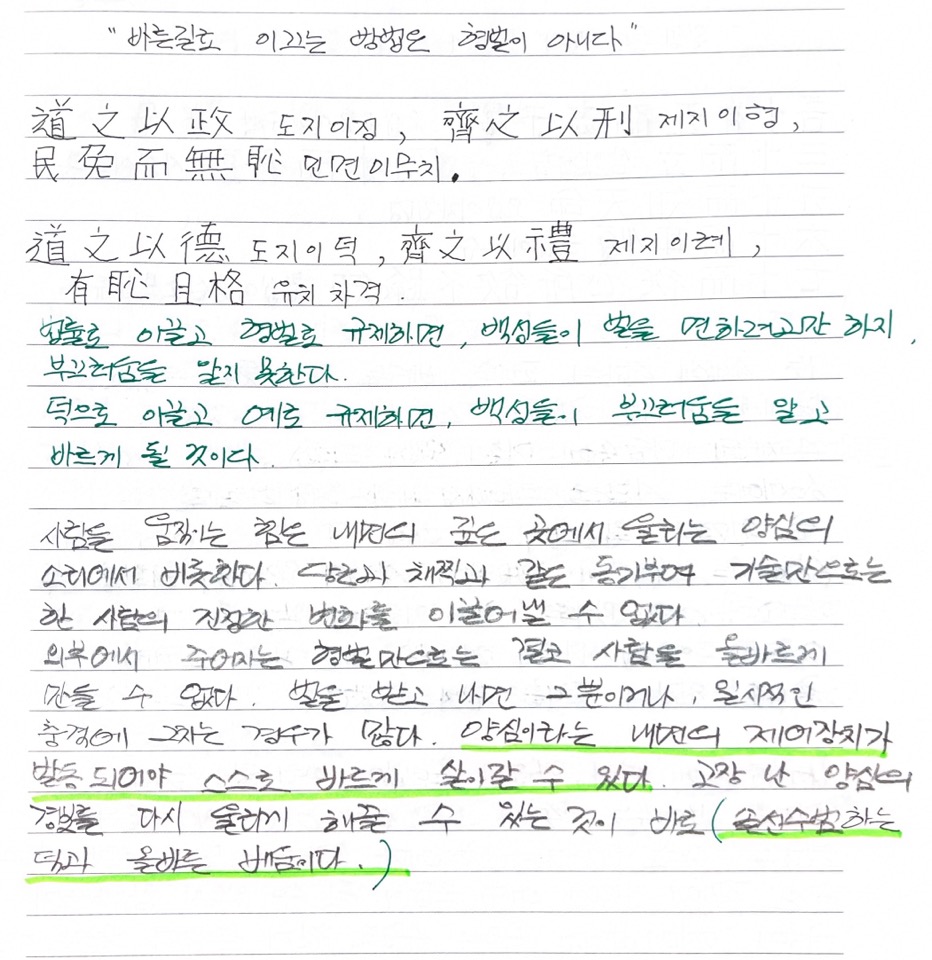 "바른길로 이끄는 방법은 형벌이 아니다"
道之以政 도지이정, 齊之以刑 제지이형,
民免而無恥 민면이무치.
道之以德 도지이덕, 齊之以禮 제지이례,
有恥且格 유치차격.
법률로 이끌고 형벌로 규제하면, 백성들이 벌을 면하려고만 하지,
부끄러움을 알지 못한다.
덕으로 이끌고 예로 규제하면, 백성들이 부끄러움을 알고
바르게 될 것이다.
사람을 움직이는 힘은 내면의 깊은 곳에서 울리는 양심의
소리에서 비롯한다. 당근과 채찍과 같은 동기부여 기술만으로는
한 사람의 진정한 변화를 이끌어낼 수 없다
외부에서 주어지는 형벌만으로는 결코 사람을 올바르게
만들 수 없다. 벌을 받고 나면 그뿐이거나, 일시적인
충격에 그치는 경우가 많다. 양심이라는 내면의 제어장치가
발동되어야 스스로 바르게 살아갈 수 있다. 고장 난 양심의
경보를 다시 울리게 해줄 수 있는 것이 바로 (솔선수범하는
덕과 올바른 배움이다.)